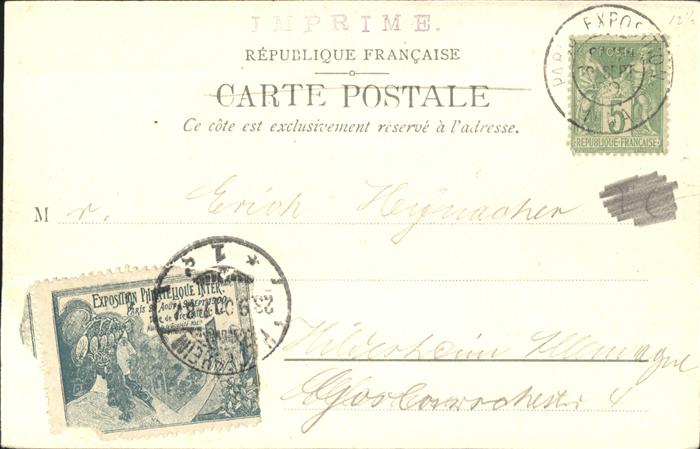 IMPRIMÉ.
RÉPUBLIQUE FRANÇAISE
CARTE POSTALE
Ce côte est exclusivement réservé à l'adresse.
PARIS EXPOSITION
SEPT
5
RÉPUBLIQUE FRANÇAISE
M r. Erich Heynacher
EXPOSITION PHILATÉLIQUE INTER.
PARIS 28 AOUT 9 SEPT 1900
23.9.00
Hildesheim Allemagne
4